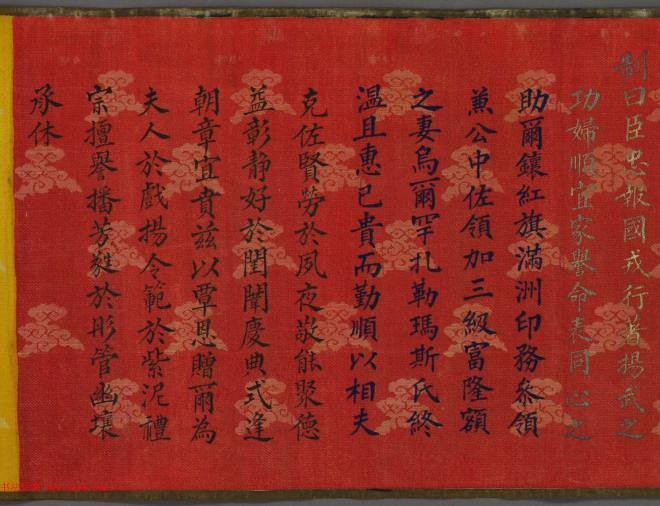 制曰臣忠報國戎行著揚武之
功婦順宜家譽命表同心之
助爾鑲紅旗滿洲印務參領
兼公中佐領加三級富隆額
之妻烏爾罕扎勒瑪斯氏終
溫且惠已貴而勤順以相夫
克佐賢勞於夙夜敬能聚德
益彰靜好於閨闈慶典式逢
朝章宜賁茲以覃恩贈爾為
夫人於戲揚令範於紫泥禮
宗擅譽播芳蕤於彤管幽壤
承休